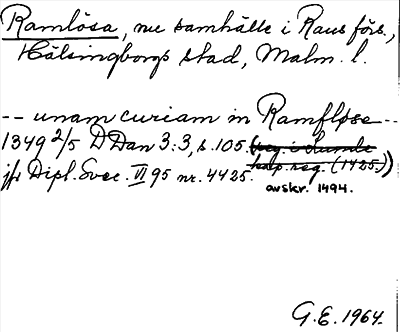 Ramlösa, nu samhälle i Raus förs.,
Hälsingborgs stad, Malm. l.
-- unam curiam in Ramfløse --
1349 2/5 DDan 3:3, s. 105. (reg. i Lunde
jfr Dipl. Svec. VI 95 nr. 4425. kap. reg. (1425.))
avskr. 1494.
G.E. 1964.